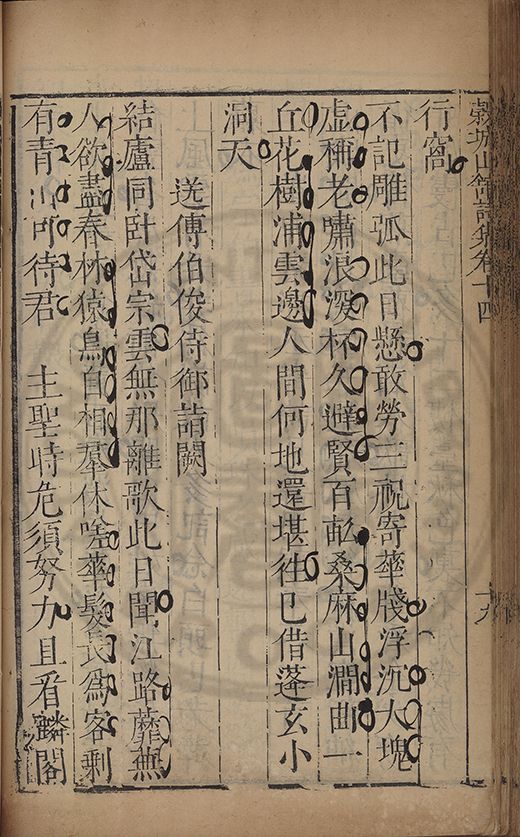 穀城山館詩集卷十四
十九
行窩
不記雕弧此日懸敢勞三祝寄華牋浮沉大塊
虛稱老嘯浪深杯久避賢百畝桑麻山澗曲一
丘花樹浦雲邊人間何地還堪往已借蓬玄小
洞天
送傅伯俊侍御詣闕
結廬同卧岱宗雲無那離歌此日聞江路蘼蕪
人欲盡春林猿鳥自相羣休嗟華髮長爲客剩
有青山可待君 主聖時危須努力且看麟閣